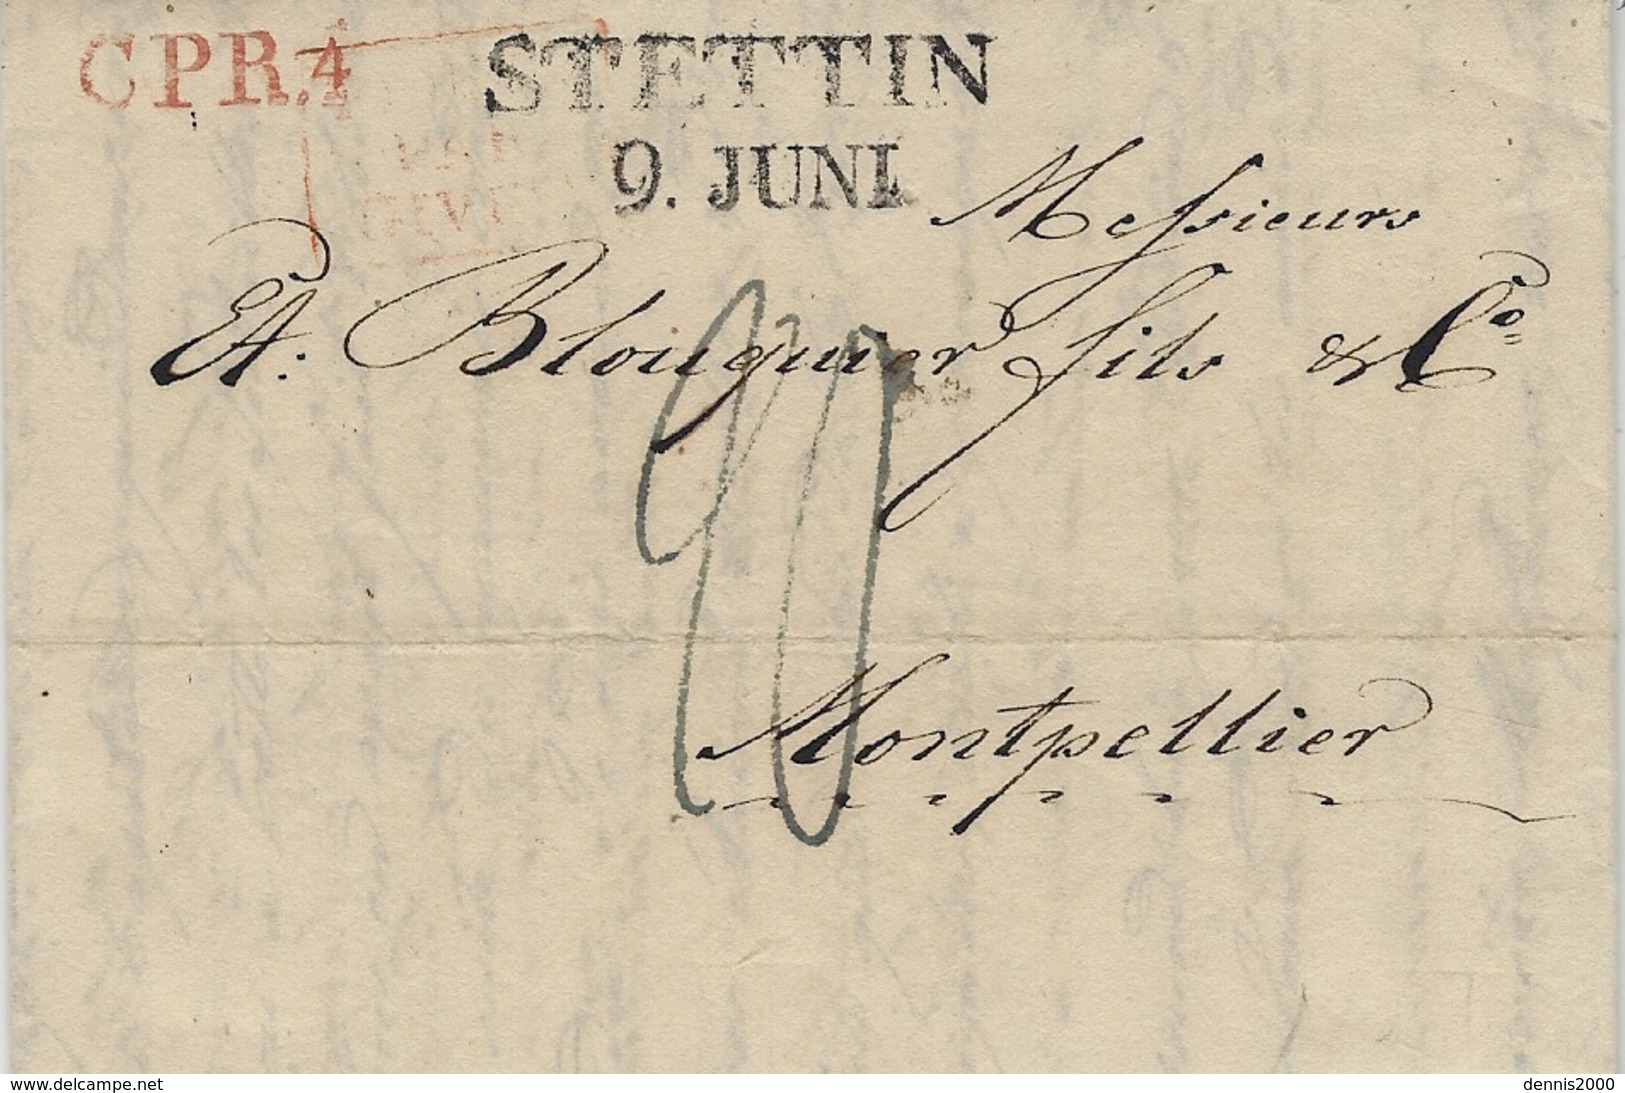 CPR.4
STETTIN
9. JUNI.
PAR
GIVET
Messieurs
Et. Blouquier fils & Co
20
Montpellier
www.delcampe.net
dennis2000